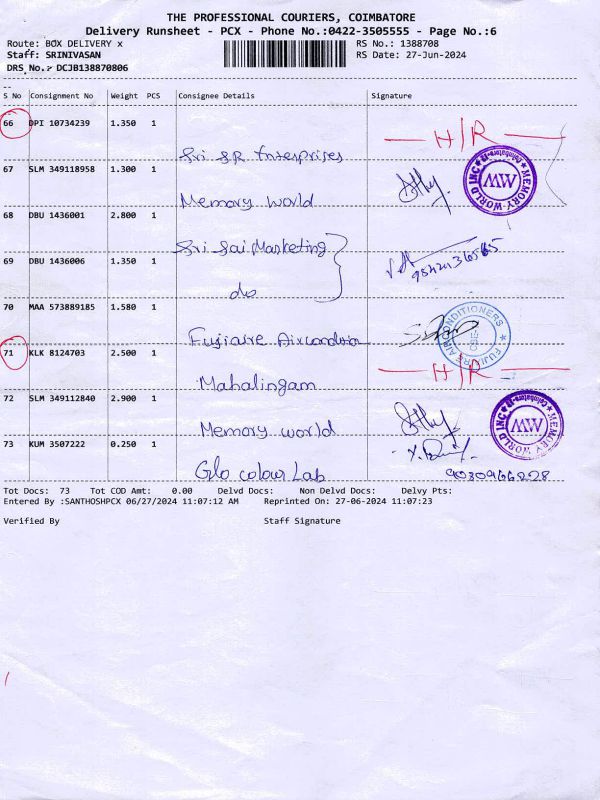 THE PROFESSIONAL COURIERS, COIMBATORE
Delivery Runsheet - PCX - Phone No.:0422-3505555 - Page No.:6
Route: BOX DELIVERY x RS No.: 1388708
Staff: SRINIVASAN RS Date: 27-Jun-2024
DRS No.: DCJB138870806
S No Consignment No Weight PCS Consignee Details Signature
66 DPI 10734239 1.350 1
H/R
Sri SR Enterprises
67 SLM 349118958 1.300 1
MEMORY WORLD INC Coimbatore-2 WW
Memory World
68 DBU 1436001 2.800 1
Sri Sai Marketing
69 DBU 1436006 1.350 1
do
70 MAA 573889185 1.580 1
FUJIAIRE AIRCONDITIONERS CBE
Fujiaire Aircondition
71 KLK 8124703 2.500 1
H/R
Mahalingam
72 SLM 349112840 2.900 1
MEMORY WORLD INC Coimbatore-2 WW
Memory world
73 KUM 3507222 0.250 1
Glo colour Lab 9030966828
Tot Docs: 73 Tot COD Amt: 0.00 Delvd Docs: Non Delvd Docs: Delvy Pts:
Entered By :SANTHOSHPCX 06/27/2024 11:07:12 AM Reprinted On: 27-06-2024 11:07:23
Verified By Staff Signature